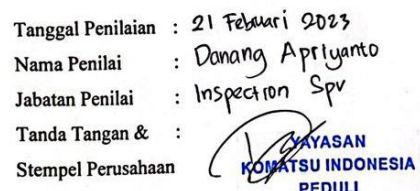 Tanggal Penilaian : 21 Februari 2023
Nama Penilai : Danang Apriyanto
Jabatan Penilai : Inspection Spv
Tanda Tangan & :
Stempel Perusahaan
YAYASAN
KOMATSU INDONESIA
PEDULI